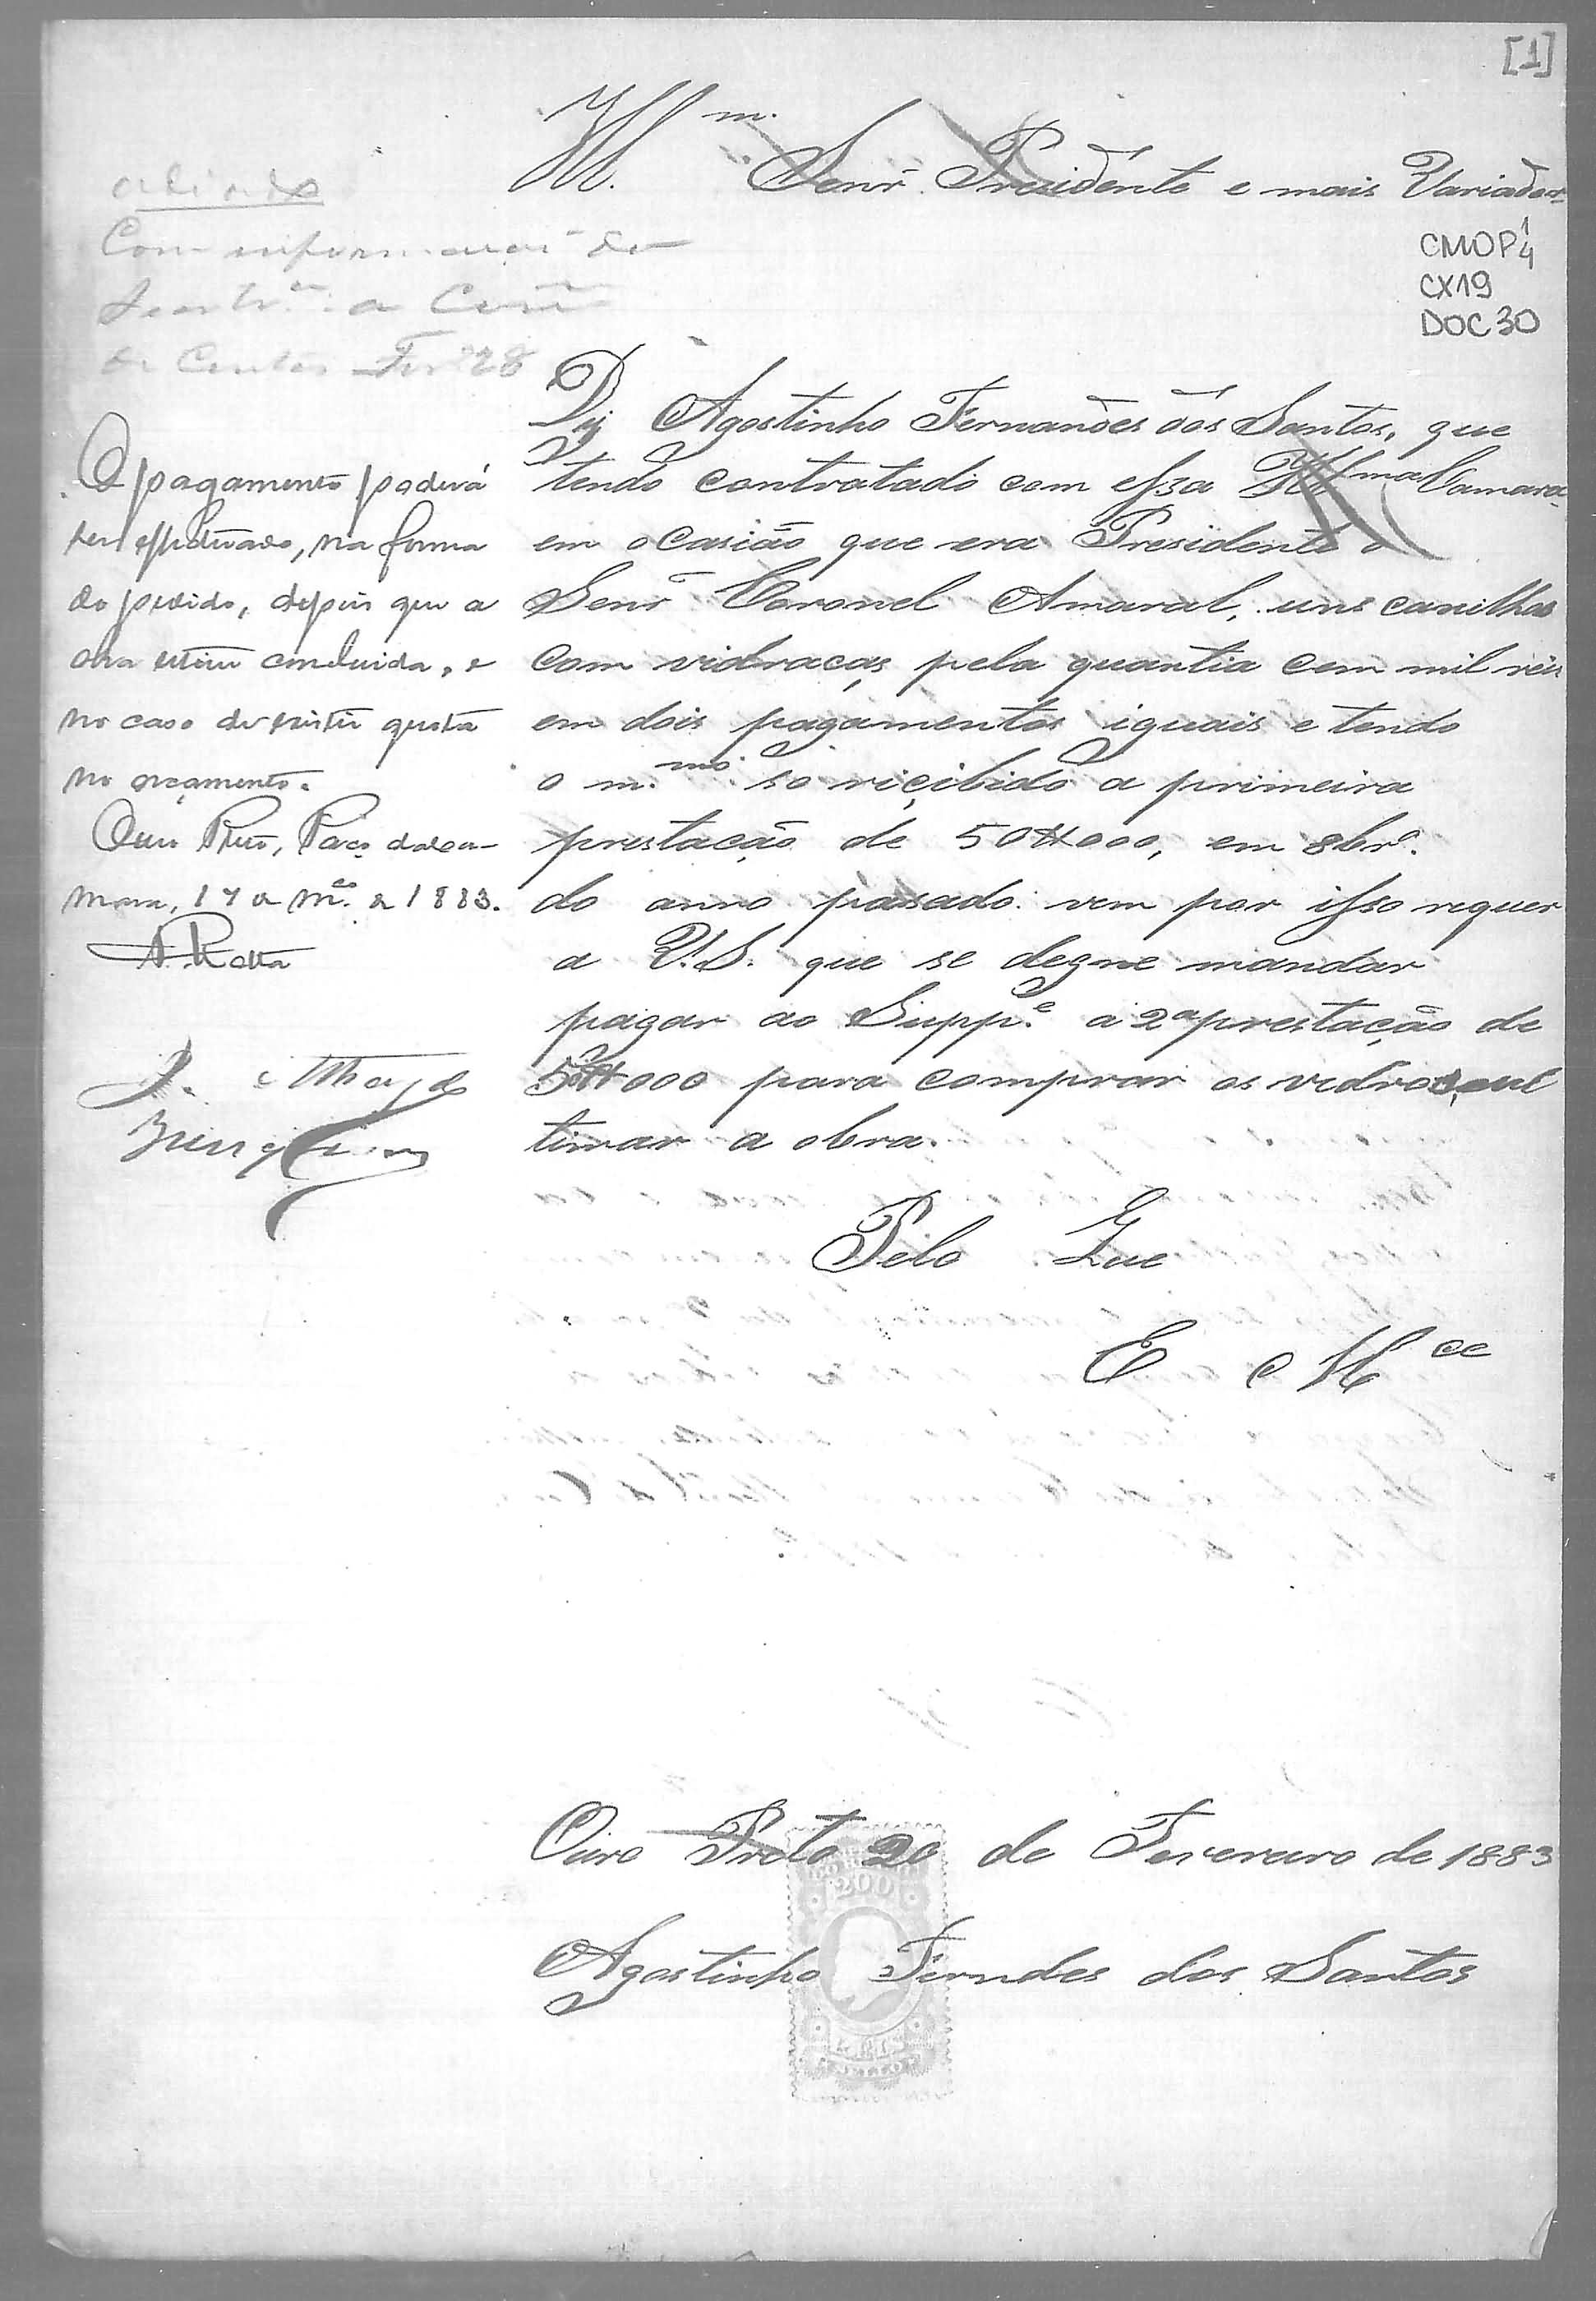 [1]
Ill.m Senr. Presidente e mais Variador
CMOP 1/4
CX19
DOC 30
adiado
Com informação do
a
de Contas Fev 28
Diz Agostinho Fernandes dos Santos, que
tendo contratado com essa Ill.ma Camara
em ocasião que era Presidente o
Senr. Coronel Amaral, uns caxilhos
com vidraças pela quantia cem mil reis
em dois pagamentos iguais e tendo
o m.mo so riçibido a primeira
prestação de 50#000, em 8br.o
do anno passado vem por isso requer
a V.S. que se degne mandar
pagar ao Supp.e a 2a prestação de
50#000 para comprar os vidros, e ul
timar a obra.
Pelo Que
E e M ce
O pagamento poderá
ser effectuado, na forma
do pedido, depois que a
obra estiver concluida, e
no caso de existir quota
no orçamento.
Ouro Preto, Paço da Ca-
mara, 17 de M.ço de 1883.
A. Rotta
Ouro Preto 20 de Fevereiro de 1883
Agostinho Ferndes dos Santos
200
REIS